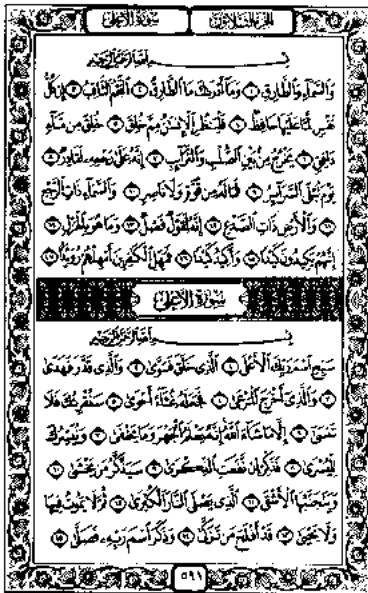 الجزء الثلاثون
سورة الأعلى
بسم الله الرحمن الرحيم
والسماء والطارق ١ وما أدراك ما الطارق ٢ النجم الثاقب ٣ إن كل
نفس لما عليها حافظ ٤ فلينظر الإنسان مم خلق ٥ خلق من ماء
دافق ٦ يخرج من بين الصلب والترائب ٧ إنه على رجعه لقادر ٨
يوم تبلى السرائر ٩ فما له من قوة ولا ناصر ١٠ والسماء ذات الرجع
١١ والأرض ذات الصدع ١٢ إنه لقول فصل ١٣ وما هو بالهزل ١٤
إنهم يكيدون كيدا ١٥ وأكيد كيدا ١٦ فمهل الكافرين أمهلهم رويدا ١٧
سورة الأعلى
بسم الله الرحمن الرحيم
سبح اسم ربك الأعلى ١ الذي خلق فسوى ٢ والذي قدر فهدى
٣ والذي أخرج المرعى ٤ فجعله غثاء أحوى ٥ سنقرئك فلا
تنسى ٦ إلا ما شاء الله إنه يعلم الجهر وما يخفى ٧ ونيسرك
لليسرى ٨ فذكر إن نفعت الذكرى ٩ سيذكر من يخشى ١٠
ويتجنبها الأشقى ١١ الذي يصلى النار الكبرى ١٢ ثم لا يموت فيها
ولا يحيى ١٣ قد أفلح من تزكى ١٤ وذكر اسم ربه فصلى ١٥
٥٩١